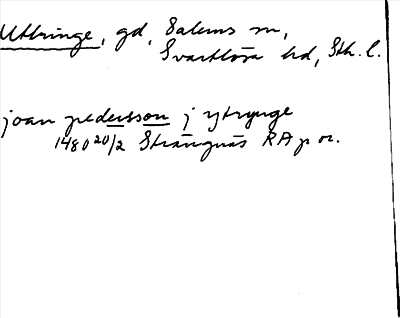 Uttringe, gd, Salems sn,
Svartlösa hd, Sth. l.
joan pedersson j ytrynge
1480 20/2 Strängnäs RA p or.